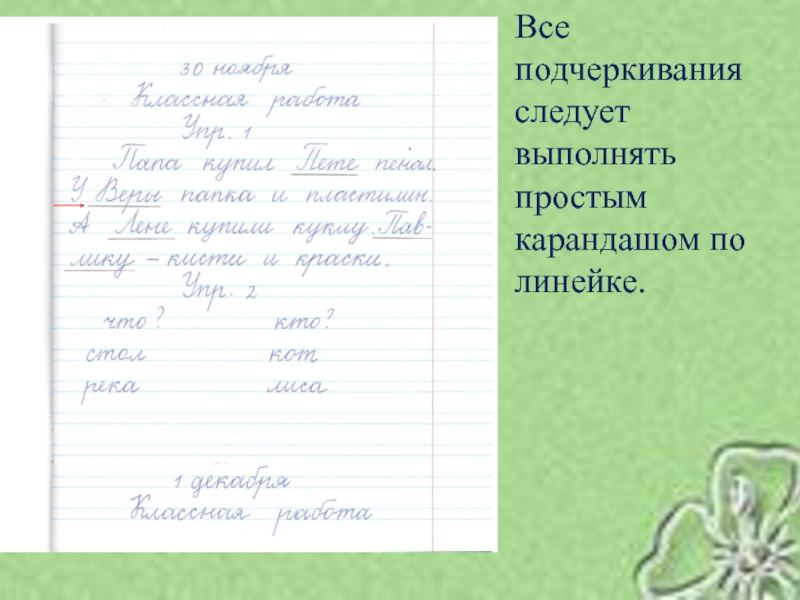 30 ноября
Классная работа
Упр. 1
Папа купил Пете пенал.
У Веры папка и пластилин.
А Лене купили куклу. Пав-
лику – кисти и краски.
Упр. 2
что? кто?
стол кот
река лиса
1 декабря
Классная работа
Все
подчеркивания
следует
выполнять
простым
карандашом по
линейке.